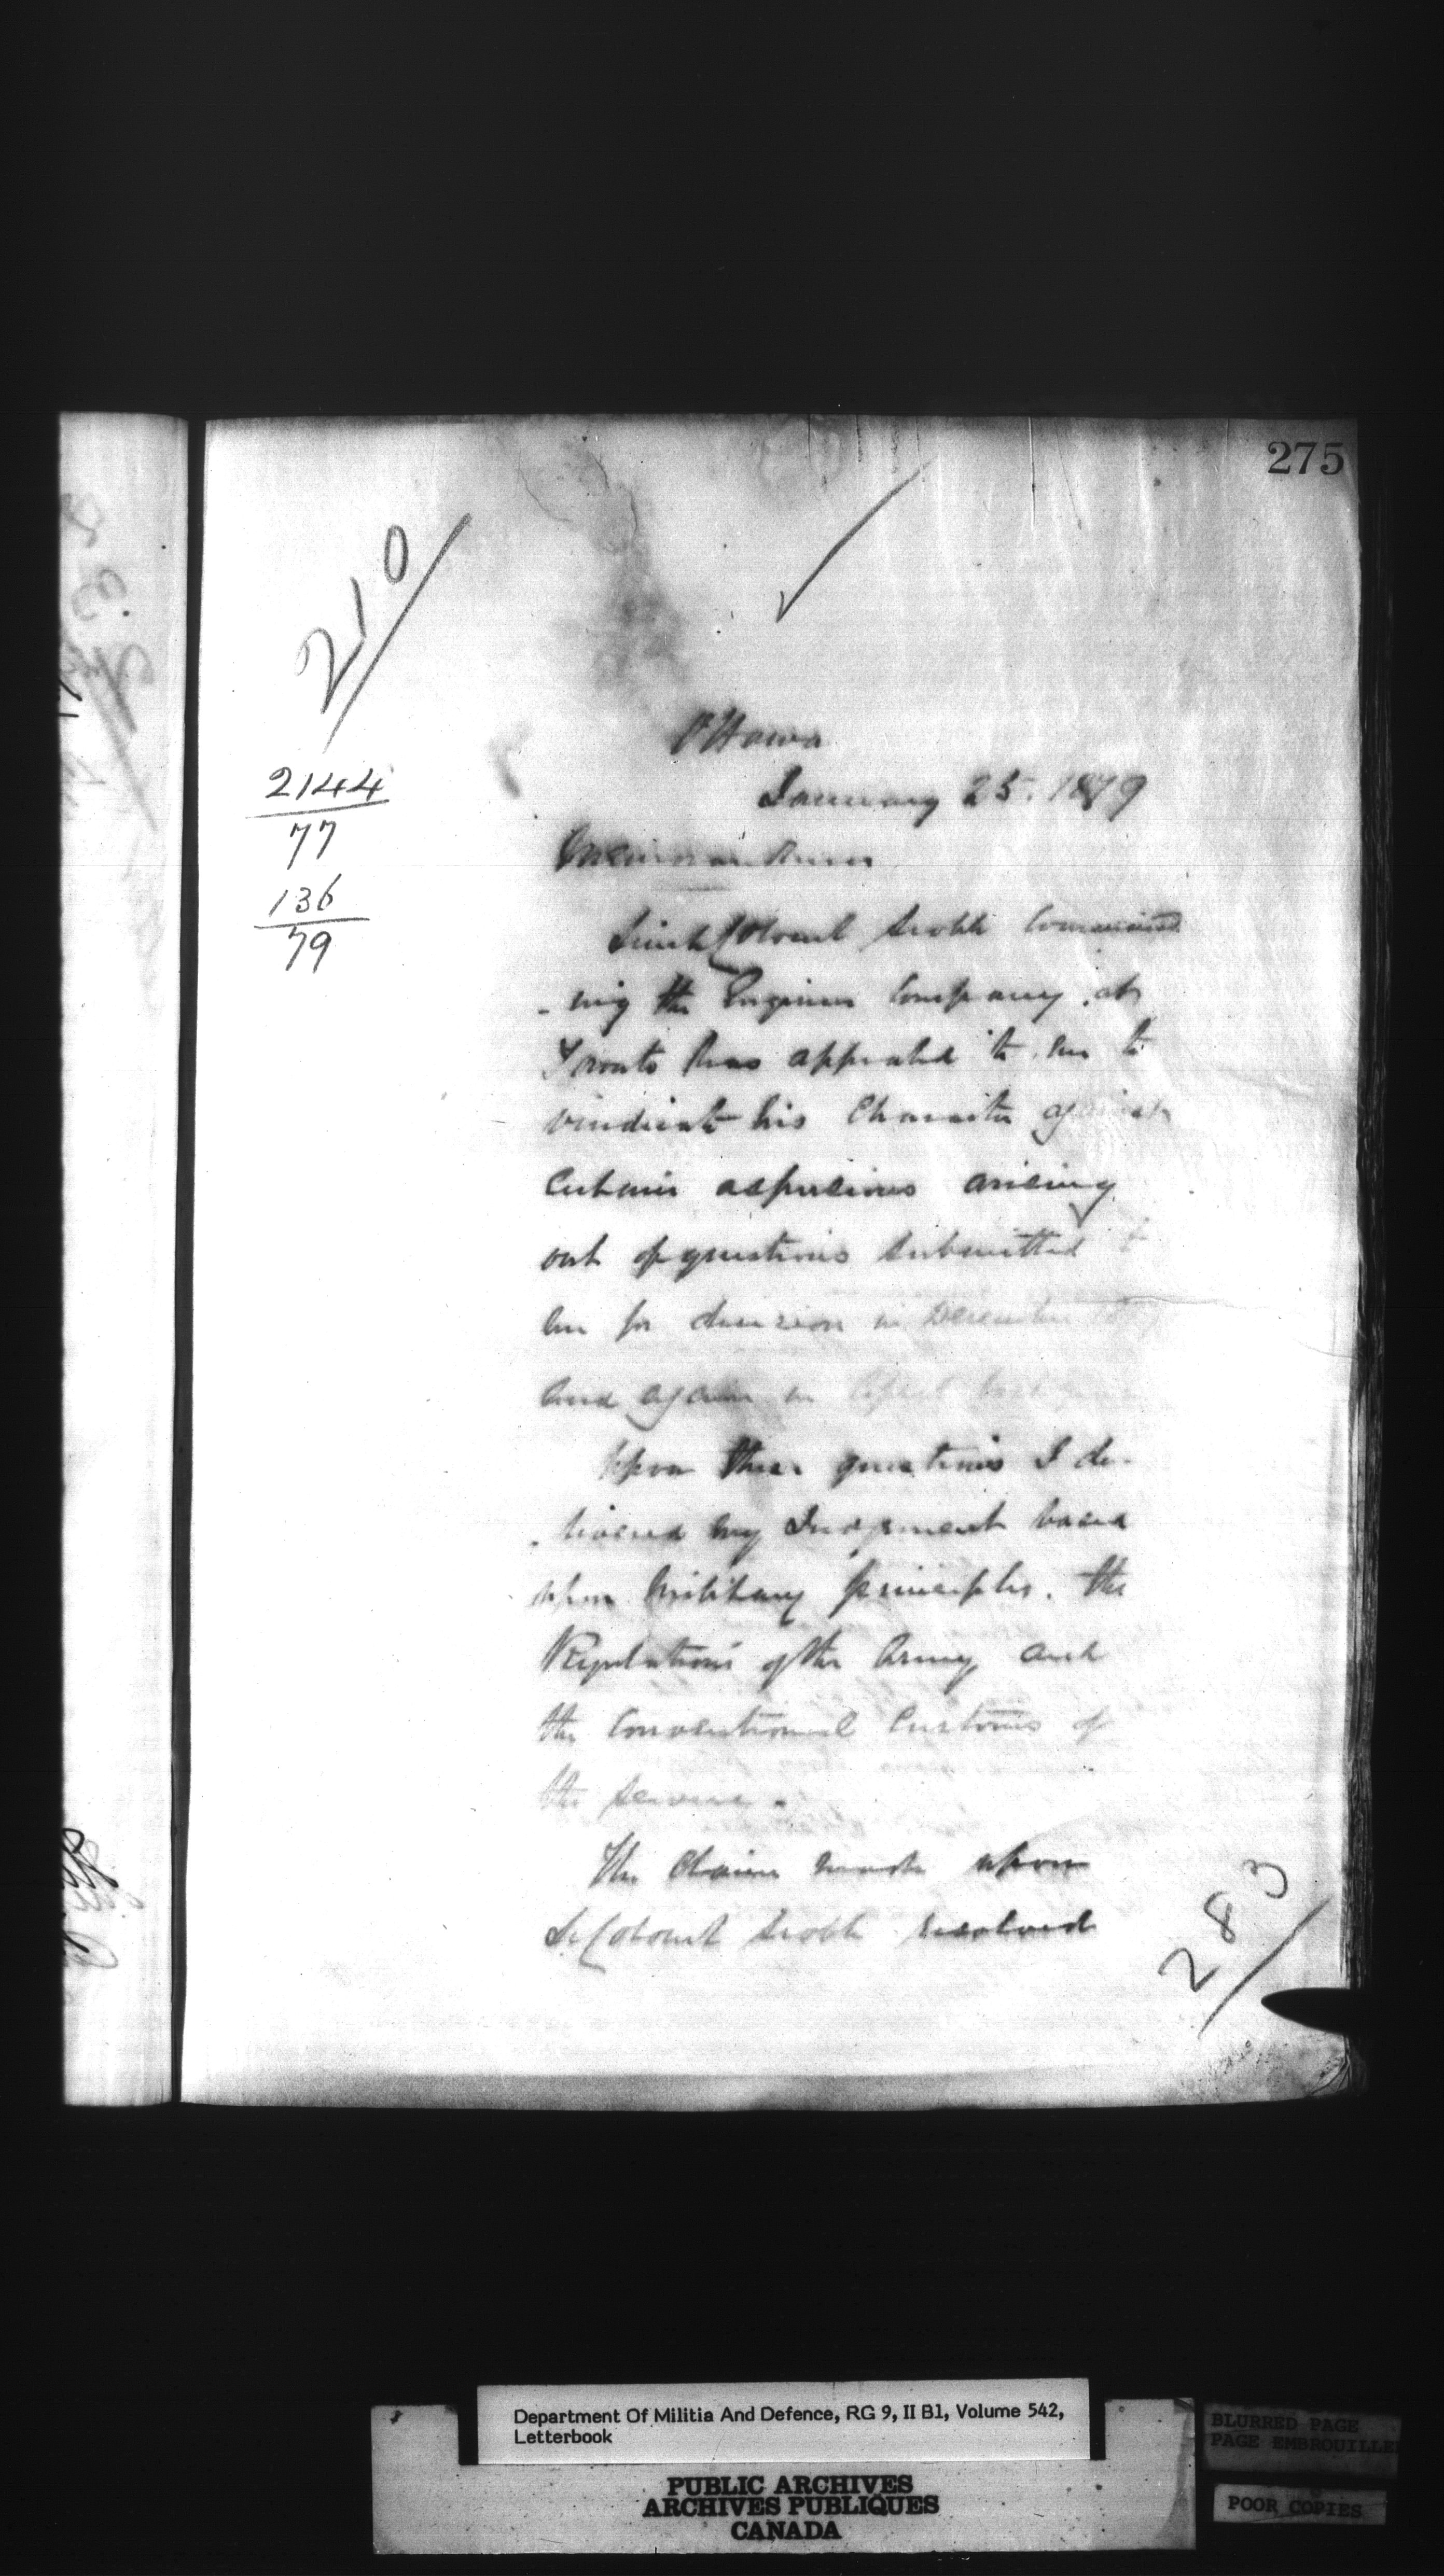 275
210
2144
77
136
79
Ottawa
January 25. 1879
Memorandum
Lieut Colonel Scoble Command
-ing the Engineer Company at
Toronto has appealed to me to
vindicate his Character against
Certain aspersions arising
out of questions submitted to
me for decision in December
and again in April last year
Upon these questions I de-
-livered my Judgment based
upon Military principles. the
Regulations of the Army and
the Conventional Customs of
the Service.
The Claim made upon
Lt Colonel Scoble resolved
283
Department Of Militia And Defence, RG 9, II B1, Volume 542,
Letterbook
PUBLIC ARCHIVES
ARCHIVES PUBLIQUES
CANADA
BLURRED PAGE
PAGE EMBROUILLE
POOR COPIES